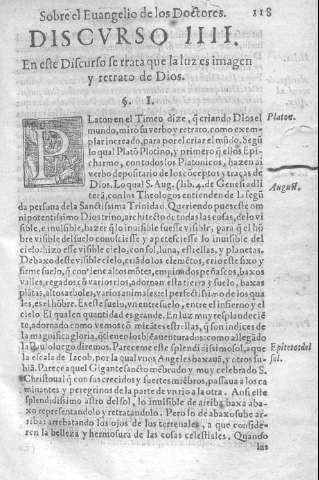 Sobre el Euangelio de los Doctores. 118
DISCVRSO IIII.
En este Discurso se trata que la luz es imagen
y retrato de Dios.
§. I.
PLaton en el Timeo dize, q̃ criando Dios el Platon.
mundo, miró su verbo y retrato, como exem-
plar increado, para por el criar el mũdo. Segũ
lo qual Platõ Plotino, y primero q̃ ellos Epi-
charmo, con todos los Platonicos, hazen al
verbo depositario de los cõceptos y traças de
Dios. Lo qual S. Aug. (lib. 4. de Genes. ad li August.
terã, con los Theologos entienden de la segũ
da persona de la Sanctissima Trinidad. Queriendo pues este om
nipotentissimo Dios trino, architecto de todas las cosas, de lo vi
sible, e inuisible, hazer q̃ lo inuisible fuesse visible, para q̃ el hõ
bre visible del suelo conosciesse y apeteciesse lo inuisible del
cielo: hizo esse visible cielo, con sol, luna, estrellas, y planetas.
Debaxo deste visible cielo, criãdo los elemẽtos, crio este fixo y
firme suelo, q̃ contiene altos mõtes, empinados peñascos, baxos
valles, regados cõ varios rios, adornan esta tierra y suelo, baxas
plãtas, altos arboles, varios animales: el perfectissimo de los qua
les, es el hõbre. Es este suelo, vn entresuelo, entre el infierno y el
cielo. El qual en quantidad es grande. En luz muy resplandeciẽ
te, adornado como vemos cõ
la magnifica gloria, q̃ tienen los biẽauenturados: como allegado
la luz luego diremos. Parecerme este splendidissimo sol, aque Epitetos del
la escala de Iacob, por la qual vnos Angeles baxauã, y otros su- sol.
biã. Parece aquel Gigante sancto mẽbrudo y muy celebrado S.
Christoual q̃ con sus crecidos y fuertes miẽbros, passaua a los ca
minantes y peregrinos de la parte de vn rio a la otra. Ansi este
splendidissimo astro del sol, lo inuisible de arriba, baxa aba-
xo representandolo y retratandolo. Pero lo de abaxo sube ar-
ribas arrebatando los ojos de los terrenales, a que conside-
ren la belleza y hermosura de las cosas celestiales. Quando
las